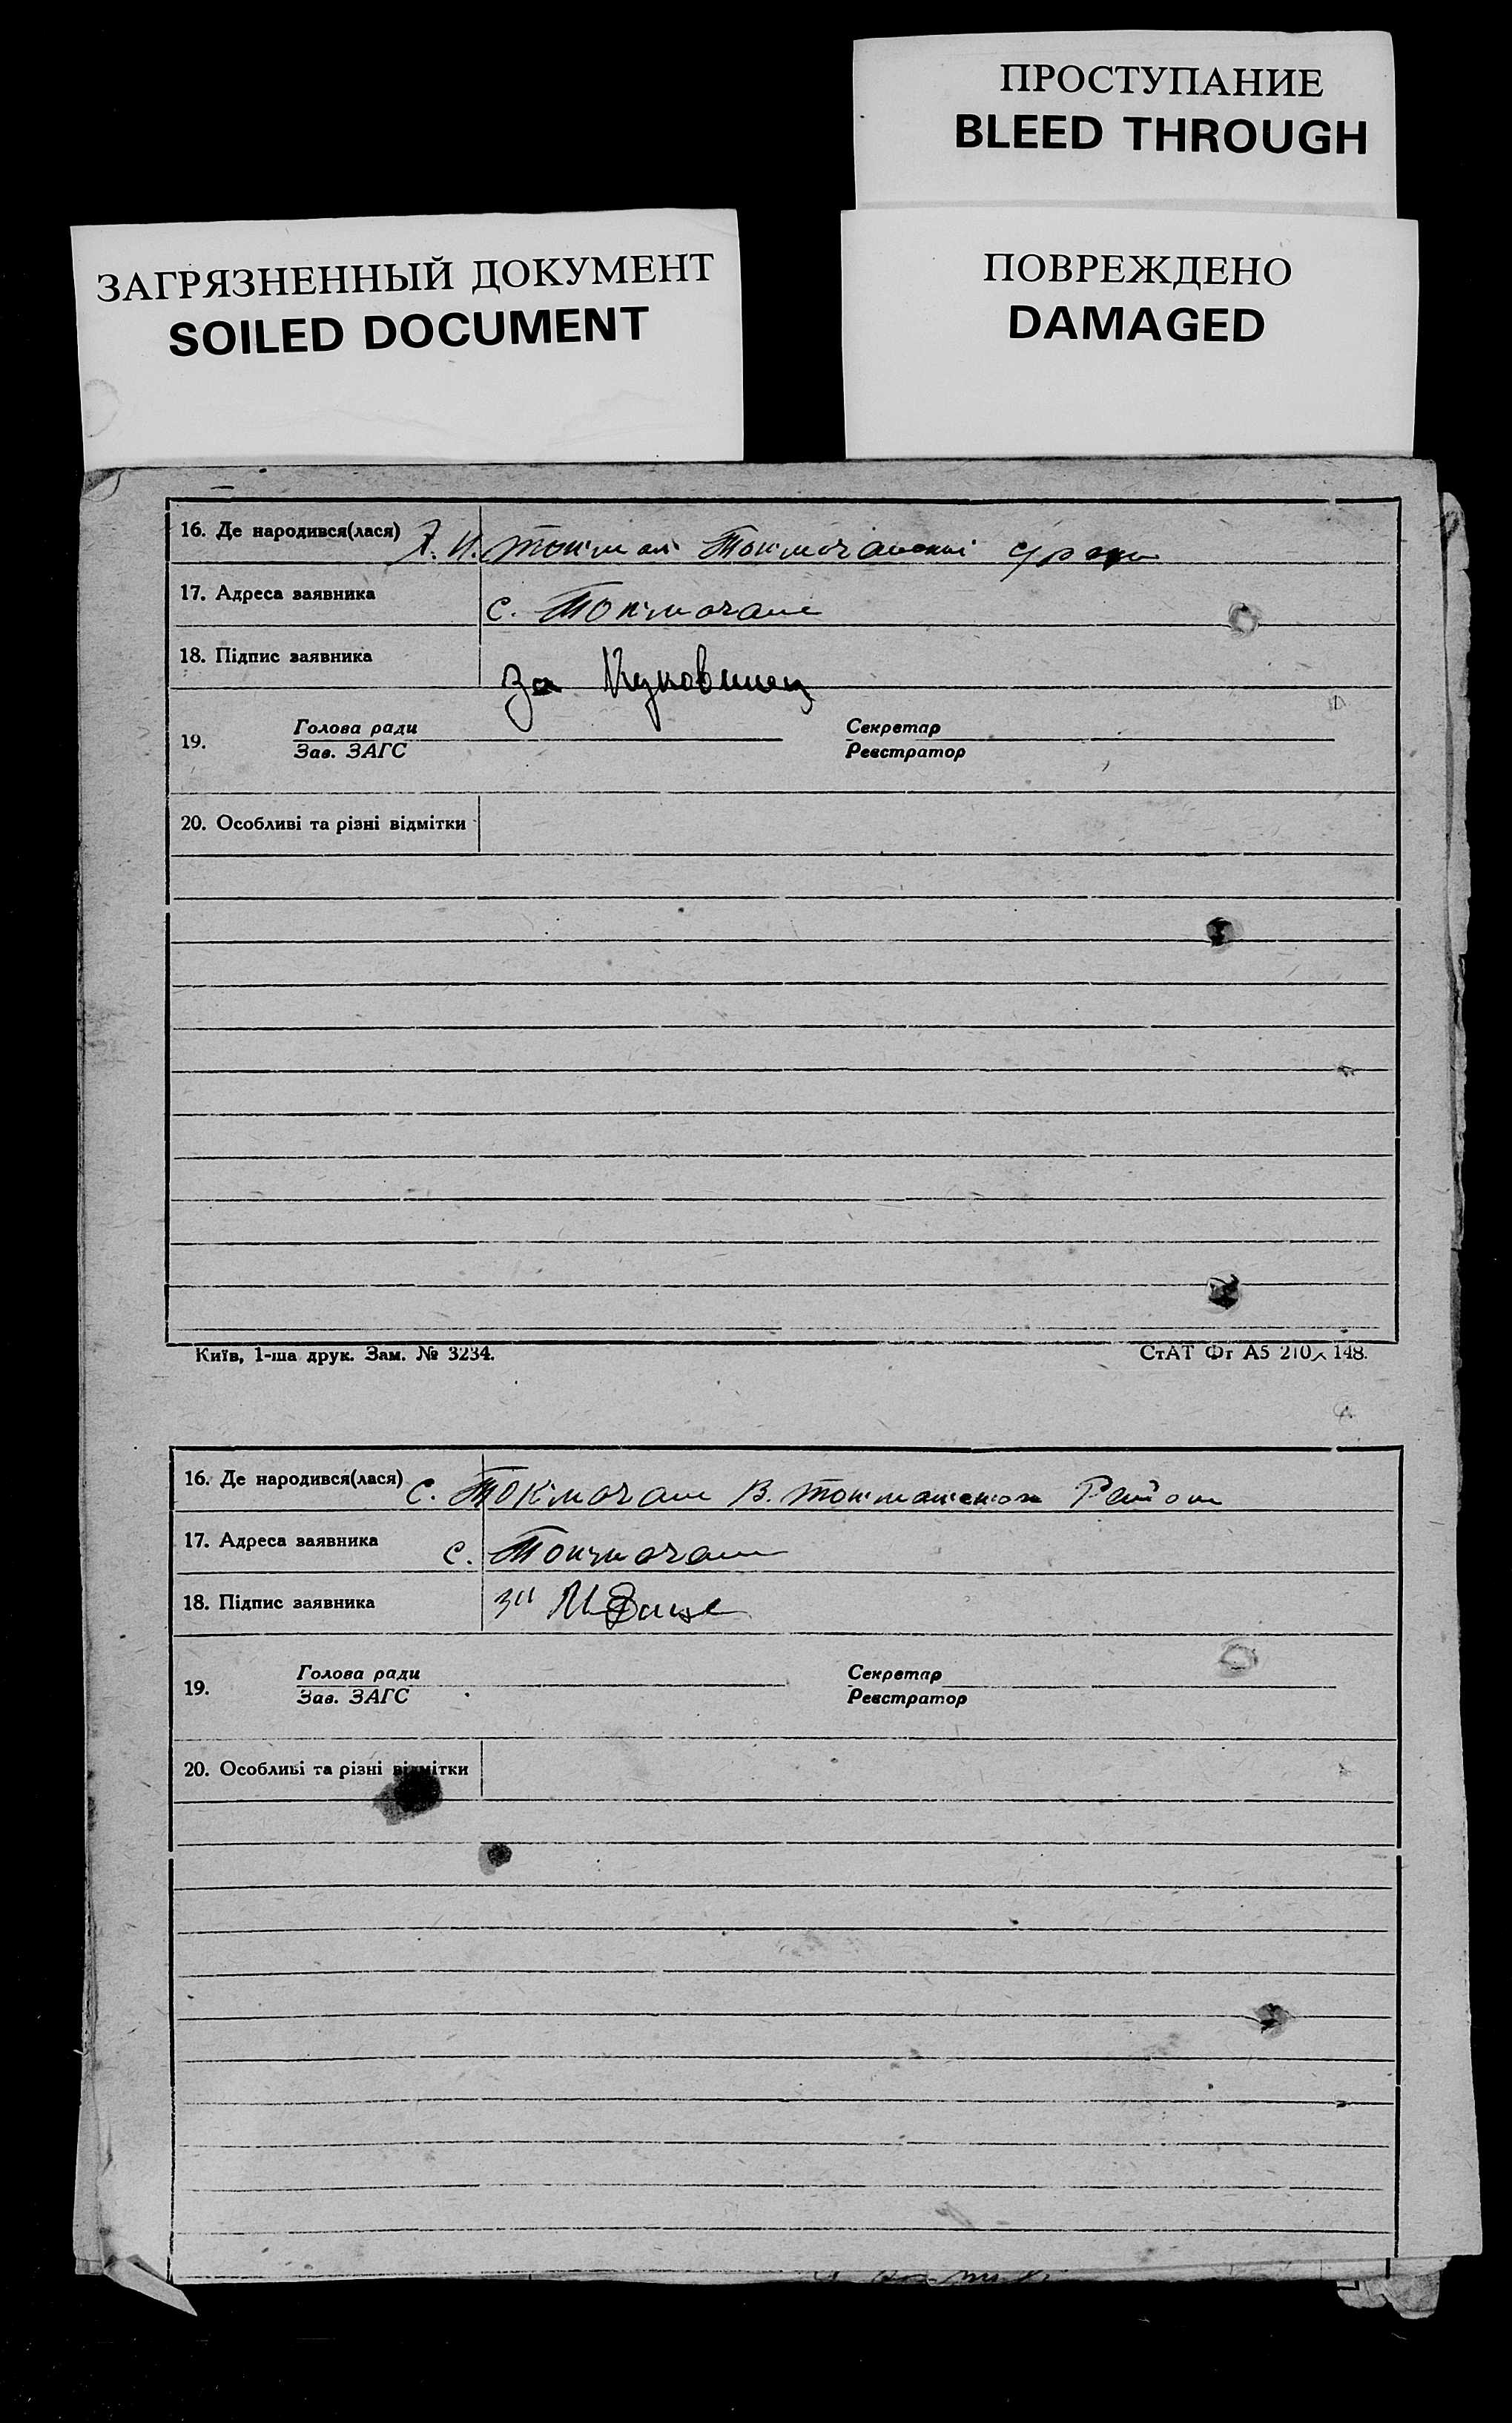 ПРОСТУПАНИЕ
BLEED THROUGH
ЗАГРЯЗНЕННЫЙ ДОКУМЕНТ
SOILED DOCUMENT
ПОВРЕЖДЕНО
DAMAGED
16. Де народився(лася)
17. Адреса заявника с. Токмачани
18. Підпис заявника За
19. Голова ради Секретар
Зав. ЗАГС Реєстратор
20. Особливі та різні відмітки
Київ, 1-ша друк. Зам. № 3234. СтАТ Фг А5 210×148.
16. Де народився(лася) с. Токмачани В. Токмацького Район
17. Адреса заявника с. Токмачани
18. Підпис заявника
19. Голова ради Секретар
Зав. ЗАГС Реєстратор
20. Особливі та різні відмітки